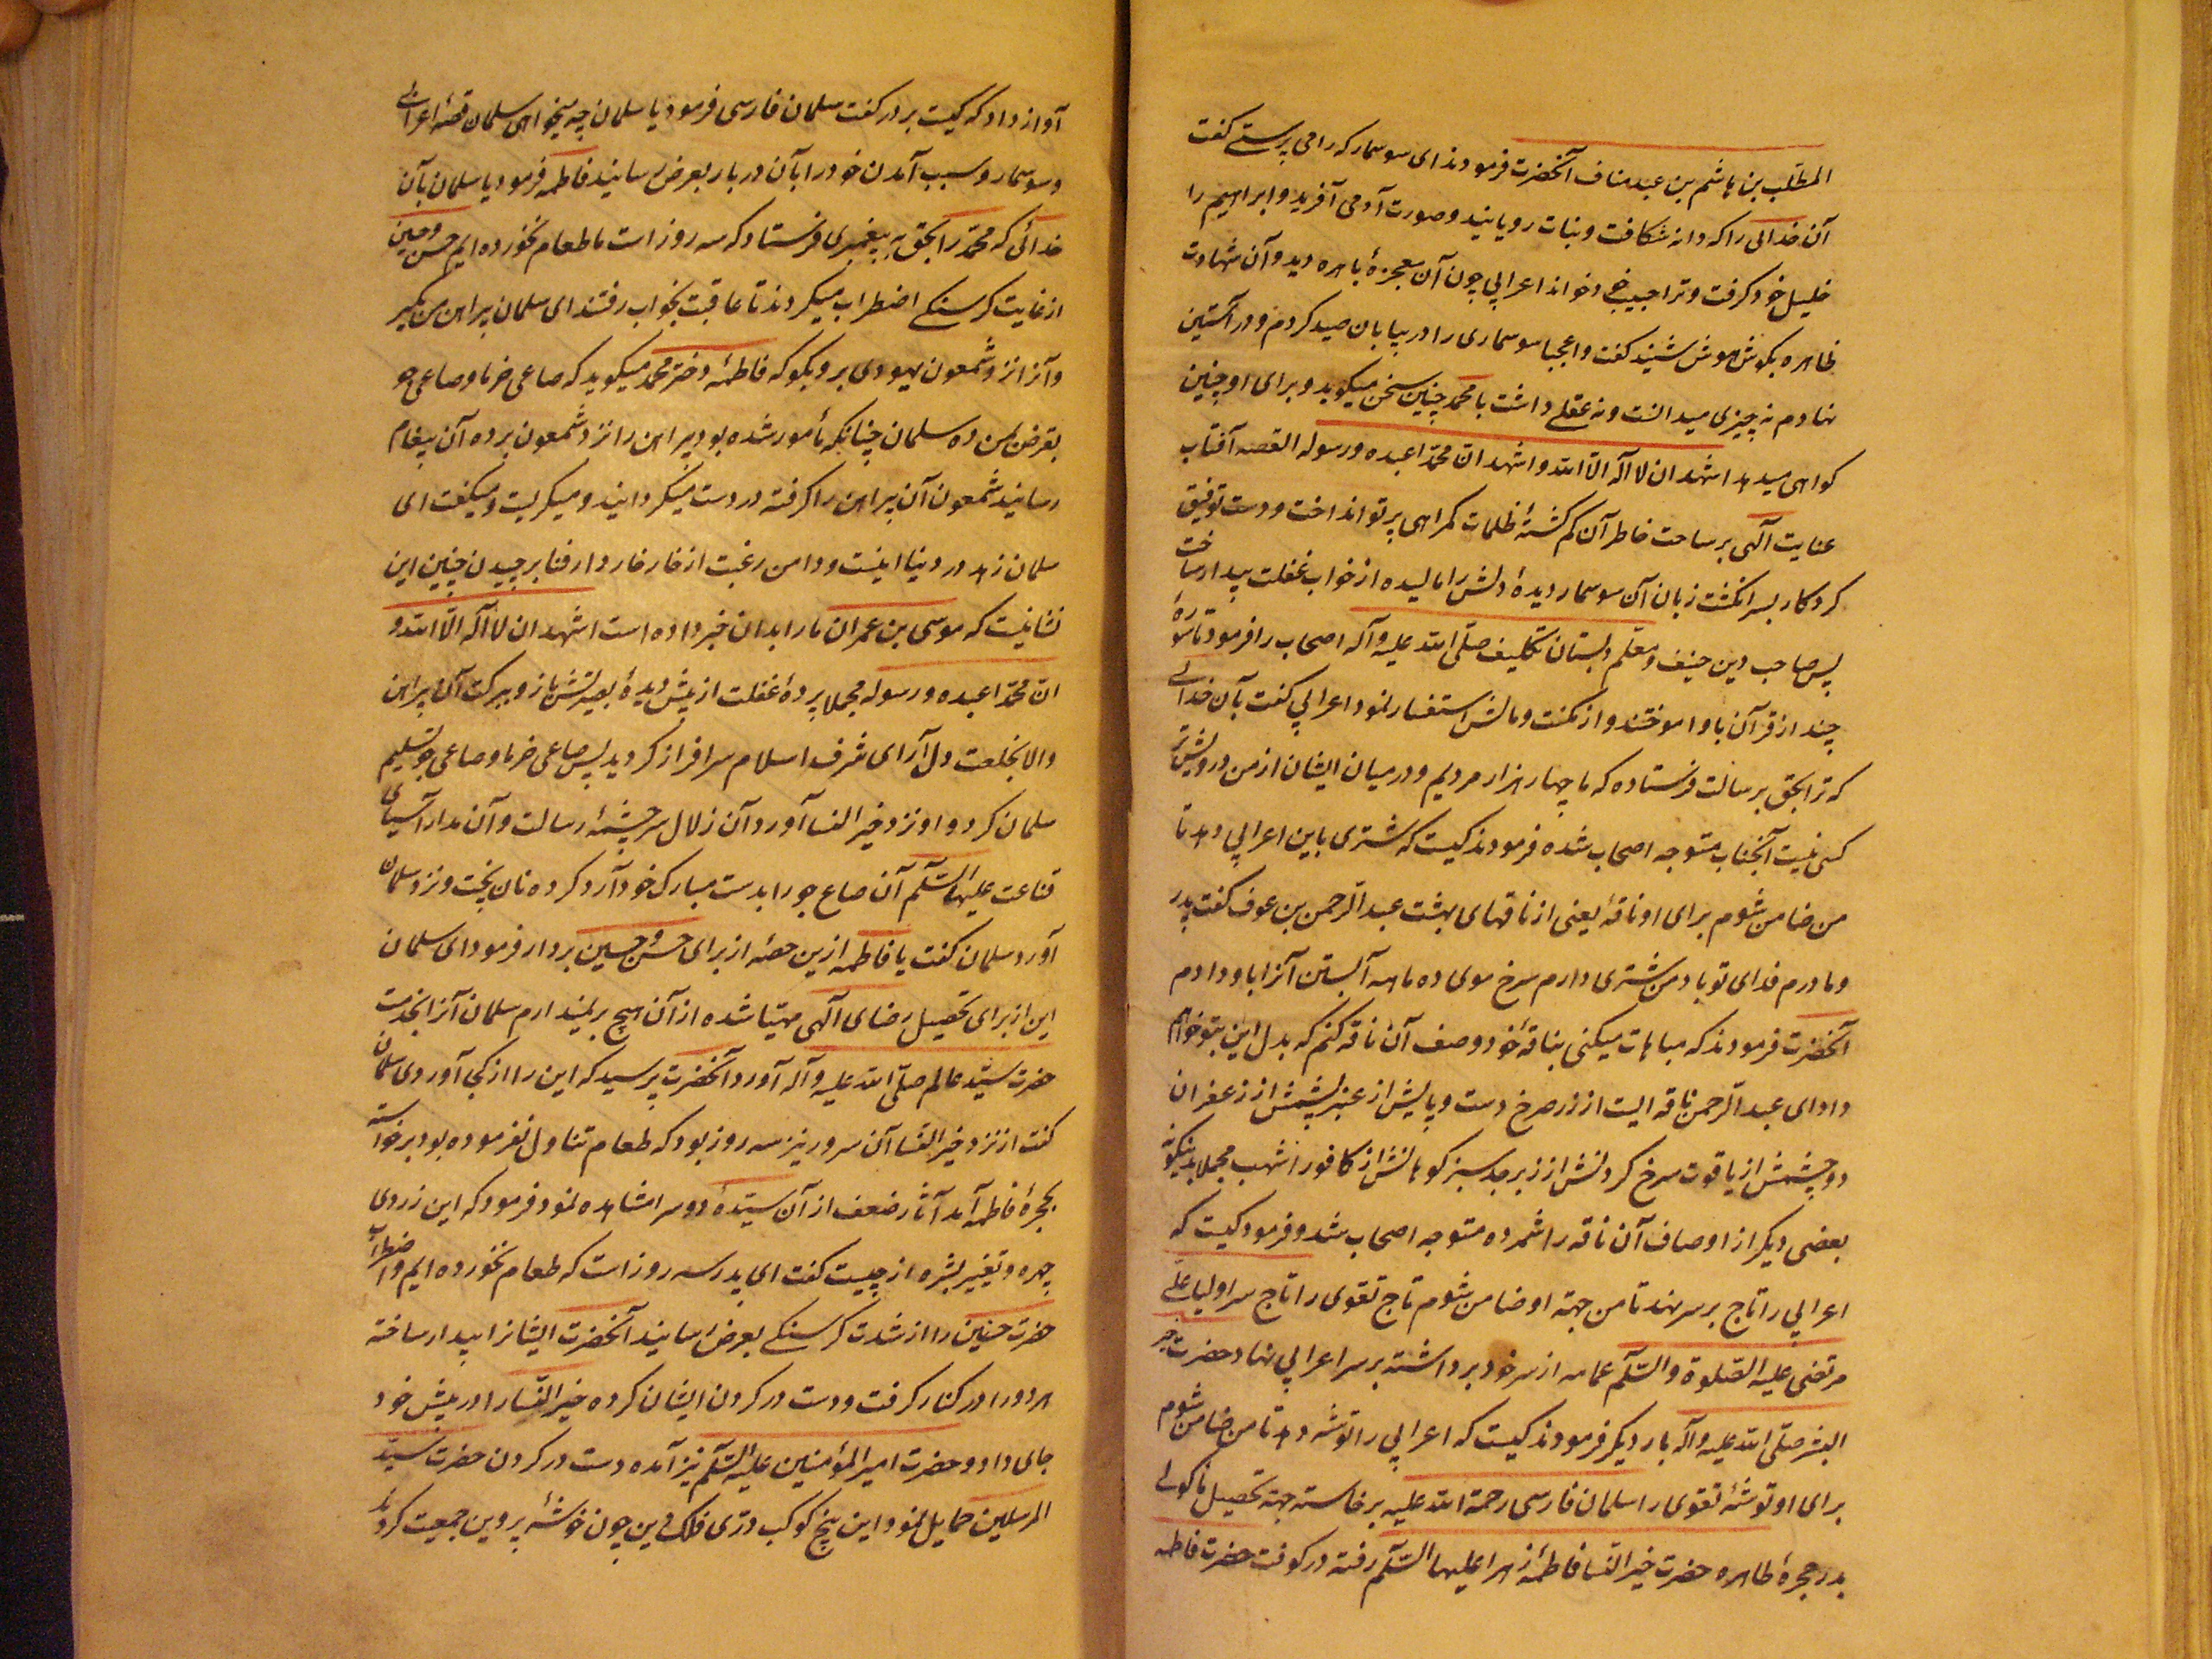 المطلب بن هاشم بن عبد مناف آنحضرت فرمودند ای سوسمار که را می پرستے گفت
آن خدائی را که دانه شکافت و نبات رویانید و صورت آدمی آفرید و ابراهیم را
خلیل خود گرفت و ترا حبیب خود خواند اعرابی چون آن معجزهٔ باهره دید و آن شهادت
ظاهره بگوش هوش شنید گفت واعجبا سوسماری را در بیابان صید کردم و در آستین
نهادم نه چیزی میدانست و نه عقلے داشت با محمد چنین سخن میگوید و برای او چنین
گواهی میدهد اشهد ان لا آله الّا الله و اشهد انّ محمّدا عبده و رسوله القصه آفتاب
عنایت آلهی بر ساحت خاطر آن گم گشتهٔ ظلمات گمراهی پرتو انداخت و دست توفیق
کردکار بسر انگشت زبان آن سوسمار دیدهٔ دلش را مالیده از خواب غفلت بیدار ساخت
پس صاحب دین حنیف و معلّم دبستان تکلیف صلّی الله علیه و آله اصحاب را فرمود تا سورهٔ
چند از قرآن باو آموختند و از مکنت و مالش استفسار نمود اعرابی گفت بآن خدائے
که ترا بحق برسالت فرستاده که ما چهار هزار مردیم و در میان ایشان از من درویش تر
کسی نیست آنجناب متوجه اصحاب شده فرمودند کیست که شتری باین اعرابی دهد تا
من ضامن شوم برای او ناقهٔ یعنی از ناقهای بهشت عبد الرحمن بن عوف گفت پدر
و مادرم فدای تو باد من شتری دارم سرخ موی ده ماهه آبستن آنرا باو دادم
آنحضرت فرمودند که مباهات میکنی بناقهٔ خود وصف آن ناقه کنم که بدل این بتو خواهم
داد ای عبد الرحمن ناقه ایست از زر سرخ دست و پایش از عنبر پشمش از زعفران
دو چشمش از یاقوت سرخ گردنش از زبرجد سبز کوهانش از کافور اشهب مجملا بدینگونه
بعضی دیگر از اوصاف آن ناقه را شمرده متوجه اصحاب شد و فرمود کیست که
اعرابی را تاج بر سر نهد تا من جهة او ضامن شوم تاج تقوی را تاج سر اولیا علی
مرتضی علیه الصلوة والسّلام عمامه از سر خود برداشته بر سر اعرابی نهاد حضرت خیر
البشر صلّی الله علیه و آله بار دیگر فرمودند کیست که اعرابی را توشه دهد تا من ضامن شوم
برای او توشهٔ تقوی را سلمان فارسی رحمة الله علیه برخاسته جهة تحصیل ماکولے
بدر حجرهٔ طاهره حضرت خیر النسا فاطمهٔ زهرا علیها السّلام رفته در کوفت حضرت فاطمه
آواز داد که کیست بر در گفت سلمان فارسی فرمود یا سلمان چه میخواهی سلمان قصهٔ اعرابی
و سوسمار و سبب آمدن خود را بآن دربار بعرض رسانید فاطمه فرمود یا سلمان بآن
خدائی که محمّد را بحق به پیغمبری فرستاد که سه روز است ما طعام نخورده ایم حسن و حسین
از غایت گرسنگے اضطراب میکردند تا عاقبت بخواب رفتند ای سلمان پیراهن من بگیر
و آنرا نزد شمعون یهودی برو بگو که فاطمهٔ دختر محمد میگوید که صاعی خرما و صاعی جو
بقرض بمن ده سلمان چنانکه مأمور شده بود پیراهن را نزد شمعون برده آن پیغام
رسانید شمعون آن پیراهن را گرفته در دست میگردانید و میگریست و میگفت ای
سلمان زهد در دنیا اینست و دامن رغبت از خار خار دار فنا برچیدن چنین این
نشانیست که موسی بن عمران ما را بدان خبر داده است اشهد ان لا آله الّا الله و
انّ محمّدا عبده و رسوله مجملا پردهٔ غفلت از پیش دیدهٔ بصیرتش باز و ببرکت آن پیراهن
والا بخلعت دل آرای شرف اسلام سرافراز گردید پس صاعی خرما و صاعی جو تسلیم
سلمان کرد و او نزد خیر النسا آورد آن زلال سرچشمهٔ رسالت و آن مدار آسیای
قناعت علیها السّلام آن صاع جو را بدست مبارک خود آرد کرده نان پخت و نزد سلمان
آورد سلمان گفت یا فاطمه ازین حصهٔ از برای حسن و حسین بردار فرمود ای سلمان
این از برای تحصیل رضای آلهی مهیّا شده از آن هیچ بر نمیدارم سلمان آنرا بخدمت
حضرت سیّد عالم صلّی الله علیه و آله آورد آنحضرت پرسید که این را از کجی آوردی سلمان
گفت از نزد خیر النسا آن سرور نیز سه روز بود که طعام تناول نفرموده بود برخواسته
بحجرهٔ فاطمه آمد آثار ضعف از آن سیّدهٔ دو سرا مشاهده نمود فرمود که این زردی
چهره و تغییر بشره از چیست گفت ای پدر سه روز است که طعام نخورده ایم و اضطراب
حضرت حسنین را از شدت گرسنگے بعرض رسانید آنحضرت ایشانرا بیدار ساخته
هر دو را در کنار گرفت و دست در گردن ایشان کرده خیر النّسا را در پیش خود
جای داد و حضرت امیر المؤمنین علیه السّلام نیز آمده دست در گردن حضرت سیّد
المرسلین حمایل نمود این پنج کوکب درّی فلک دین چون خوشهٔ پروین جمعیت کردند